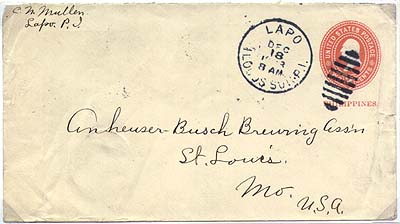 C. M. Mullen
Lapo. P. I.
LAPO
DEC
18
8 AM
ILOCOS SUR, P.I.
UNITED STATES POSTAGE
PPINES.
Anheuser-Busch Brewing Ass'n
St. Louis.
Mo.
U.S.A.